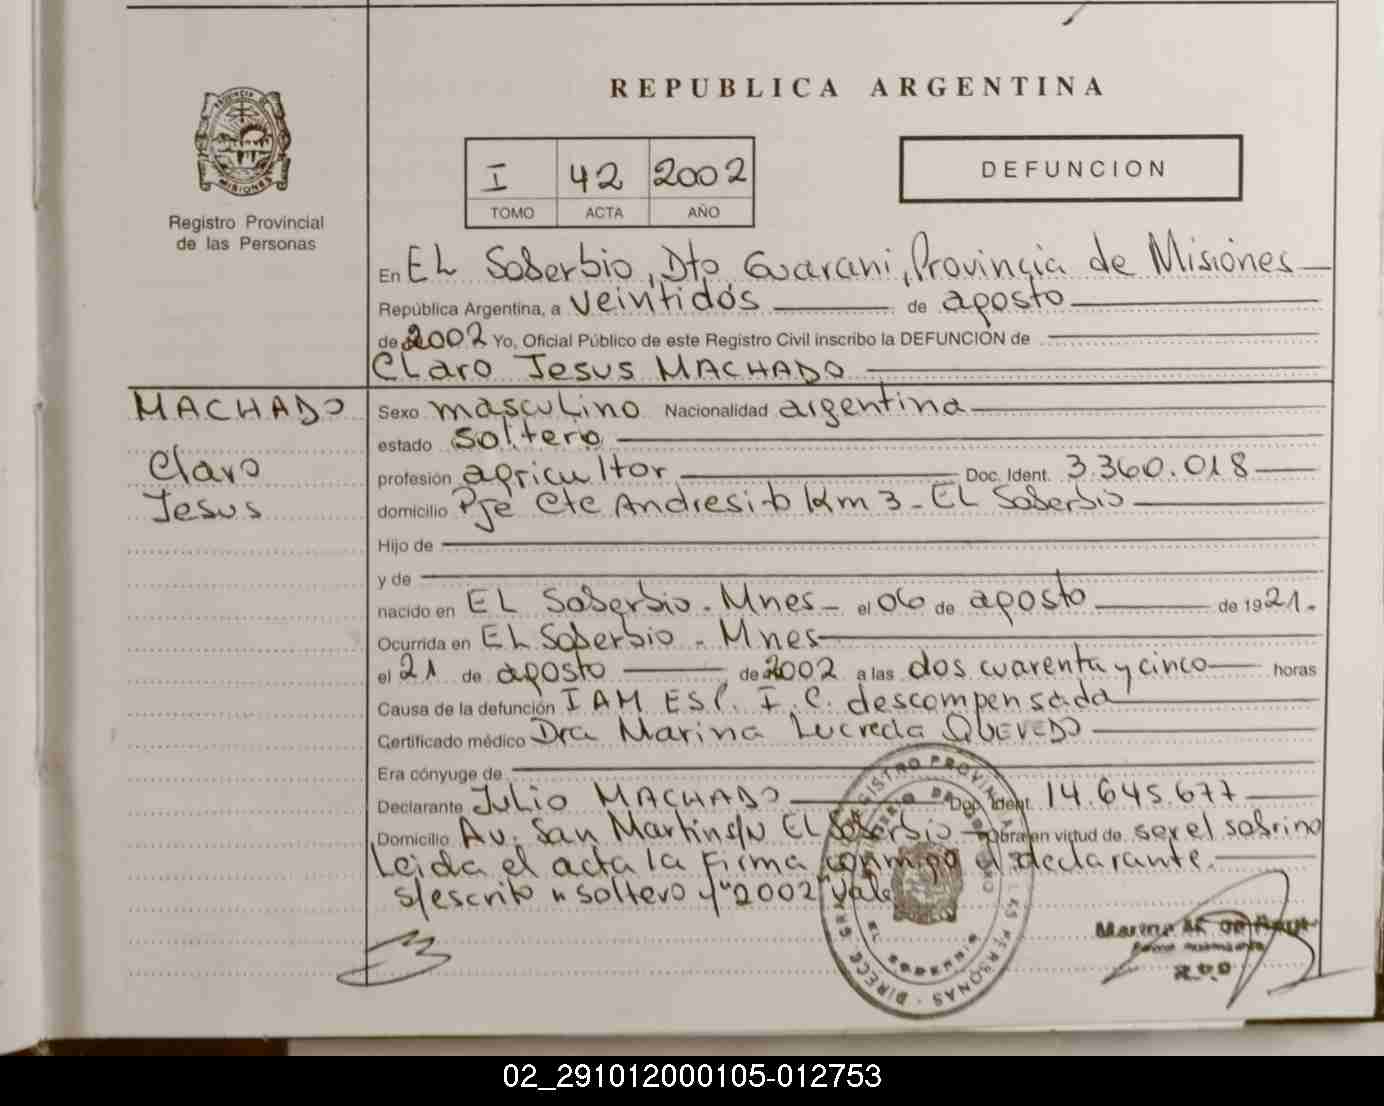 REPUBLICA ARGENTINA
PROVINCIA DE
MISIONES
Registro Provincial
de las Personas
I 42 2002
TOMO ACTA AÑO
DEFUNCION
En EL Soberbio, Dto Guarani, Provincia de Misiones
República Argentina, a veintidós de agosto
de 2002 Yo, Oficial Público de este Registro Civil inscribo la DEFUNCIÓN de
Claro Jesus MACHADO
MACHADO
Claro
Jesus
Sexo masculino Nacionalidad argentina
estado soltero
profesión agricultor Doc. Ident. 3.360.018
domicilio Pje Cte Andresito Km 3 - EL Soberbio
Hijo de
y de
nacido en EL Soberbio - Mnes - el 06 de agosto de 1921.
Ocurrida en EL Soberbio - Mnes
el 21 de agosto de 2002 a las dos cuarenta y cinco horas
Causa de la defunción IAM ESP. I.C. descompensada
Certificado médico Dra Marina Lucrecia QUEVEDO
Era cónyuge de
Declarante Julio MACHADO Doc. Ident. 14.645.677
Domicilio Av. San Martin s/N EL Soberbio Obra en virtud de ser el sobrino
Leida el acta la firma conmigo el declarante.
s/escrito "soltero y "2002" Vale
EL SOBERBIO
Marina
02_291012000105-012753